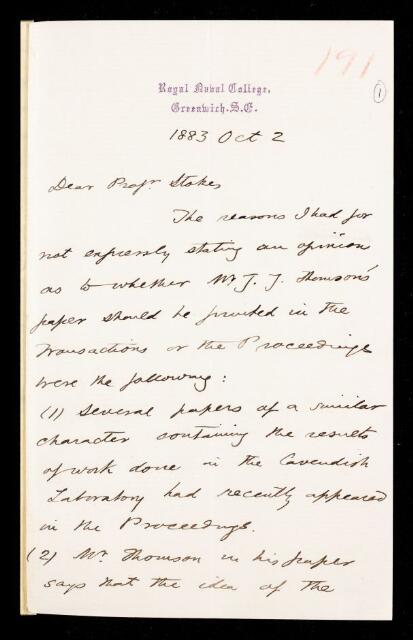 191
1
Royal Naval College,
Greenwich. S.E.
1883 Oct 2
Dear Profr. Stokes,
The reasons I had for
not expressly stating an opinion
as to whether Mr J. J. Thomson's
paper should be printed in the
Transactions or the Proceedings
were the following:
(1) Several papers of a similar
character containing the results
of work done in the Cavendish
Laboratory had recently appeared
in the Proceedings.
(2) Mr. Thomson in his paper
says that the idea of the